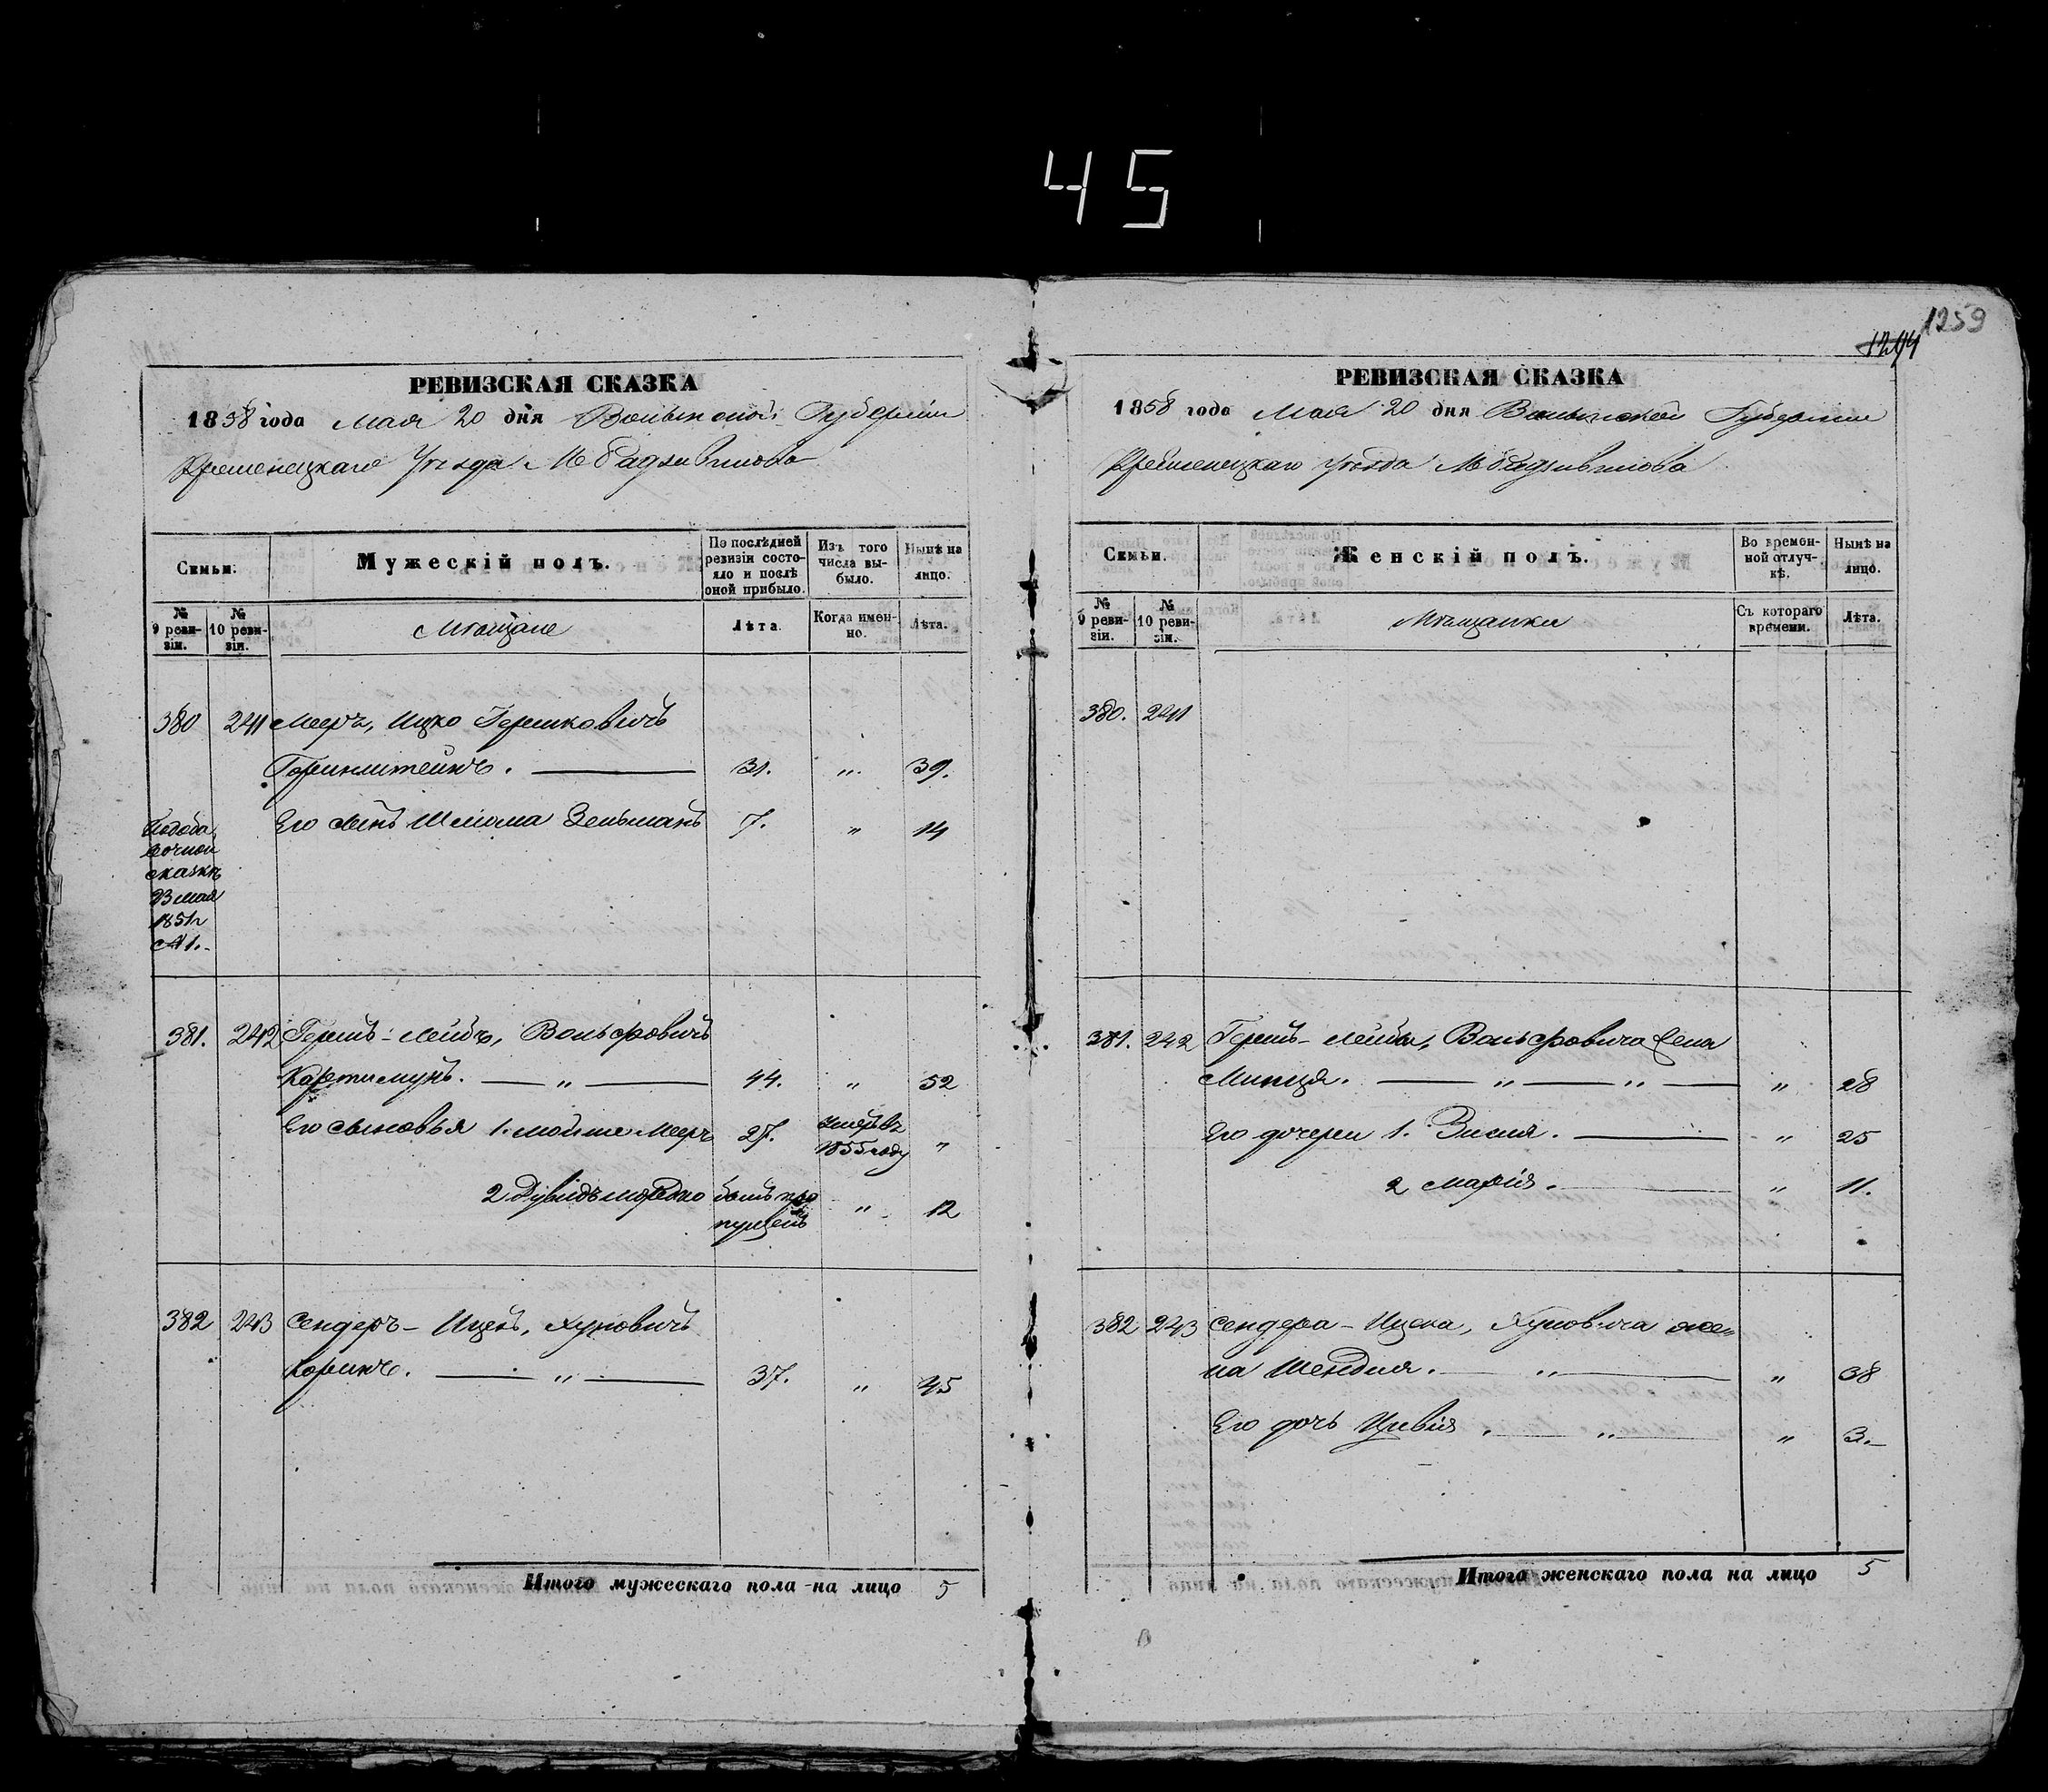 45
1259
1264
РЕВИЗСКАЯ СКАЗКА
1858 года Мая 20 дня Волынской Губерніи
Кременецкаго Уѣзда М. Радзивилова
Семьи.
Мужескій полъ.
По послѣдней ревизіи состояло и послѣ оной прибыло.
Изъ того числа выбыло.
Нынѣ на лицо.
№ 9 ревизіи.
№ 10 ревизіи.
Мѣщане
Лѣта.
Когда именно.
Лѣта.
380 241 Мееръ, Ицко Гершковичъ
Горинштейнъ. 31. " 39.
Его сынъ Шлиома Зельманъ 7. " 14
сказкѣ
23 мая
1851 г
№ 1.
381. 242 Гершъ-Лейбъ, Вольфовичъ
Картимунъ. " 44. " 52
Его сыновья 1. Мойше Мееръ 27. умеръ въ 1855 году "
2 Дувидъ Мордко былъ пропущенъ " 12
382 243 Сендеръ-Ицекъ, Януовичъ
Коринъ. " 37. " 45
Итого мужескаго пола на лицо 5
РЕВИЗСКАЯ СКАЗКА
1858 года Мая 20 дня Волынской Губерніи
Кременецкаго уѣзда М. Радзивилова
Семьи.
Женскій полъ.
Во временной отлучкѣ.
Нынѣ на лицо.
№ 9 ревизіи.
№ 10 ревизіи.
Мѣщанки
Съ котораго времени.
Лѣта.
380. 241
381. 242 Гершъ-Лейба, Вольфовича жена
Минця. " " " 28
Его дочери 1. Зисля. " 25
2 Марія. " 11.
382 243 Сендера-Ицека, Януовича же-
на Шендля. " " 38
Его дочь Цивія. " " 3.
Итого женскаго пола на лицо 5